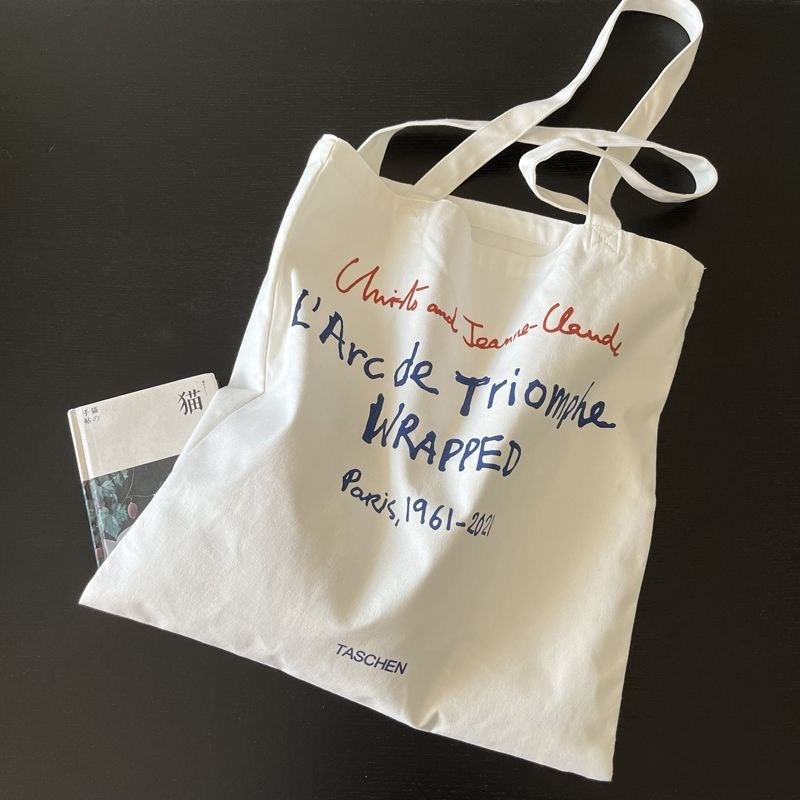 Christo and Jeanne-Claude
L'Arc de Triomphe
WRAPPED
Paris, 1961-2021
TASCHEN
猫
猫の
手帖